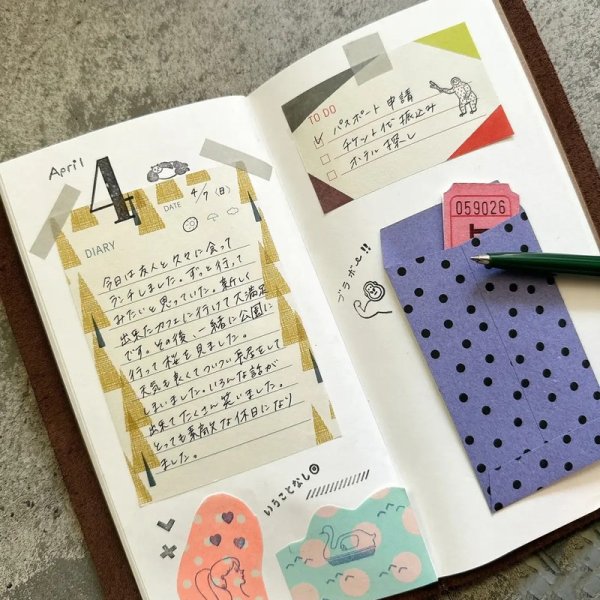 April
4
DATE 4/7 (日)
DIARY
今日は友人と久々に会って
ランチしました。ずっと行って
みたいと思っていた。新しく
出来たカフェに行けて大満足
です。その後、一緒に公園に
行って桜を見ました。
天気も良くてついつい長居をして
しまいました。いろんな話が
出来てたくさん笑いました。
とっても素敵な休日になり
ました。
いうことなし
TO DO
パスポート申請
チケット代振込み
ホテル探し
ブラボー!!
059026